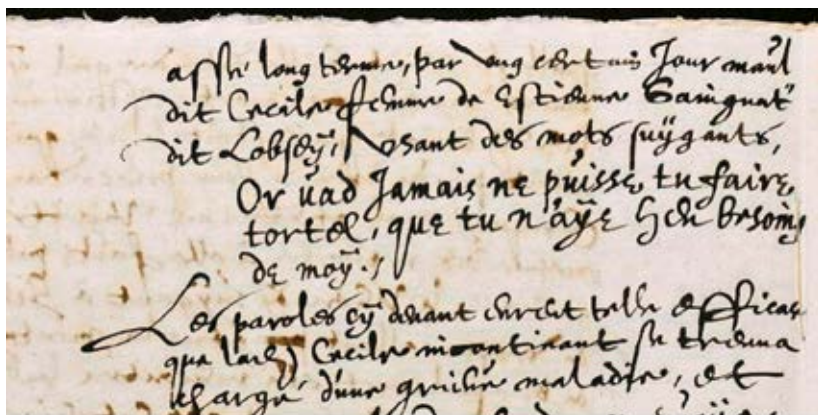 assé long terme, par ung certain Jour mául
dit Cecile femme de Estienne Gaingnat
dit Lobseÿ, Vsant des mots suÿgants,
Or uad Jamais ne puisse tu faire
tortel, que tu n'aÿe heu besoing
de moÿ./
Les paroles cÿ deuant eurent telle efficas
que lad) Cecile incontinant se treuua
chargé d'une griefue maladie, et